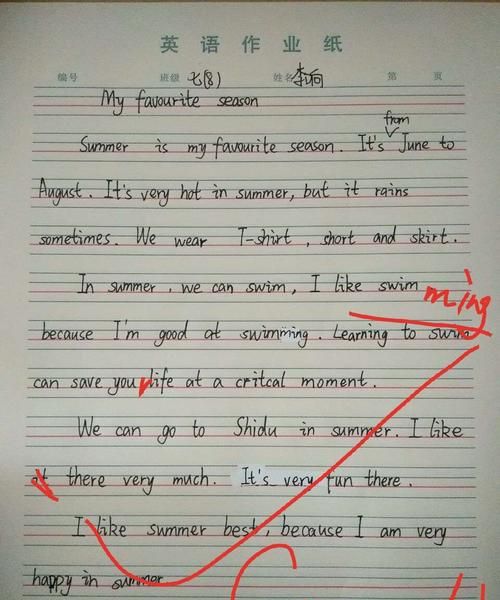 英语作业纸
编号 班级 七(8) 姓名 李响 第 页
My favourite season
from
Summer is my favourite season. It's June to
August. It's very hot in summer, but it rains
sometimes. We wear T-shirt, short and skirt.
In summer, we can swim, I like swim ming
because I'm good at swimming. Learning to swim
can save you r life at a critcal moment.
We can go to Shidu in summer. I like
it there very much. It's very fun there.
I like summer best, because I am very
happy in summer